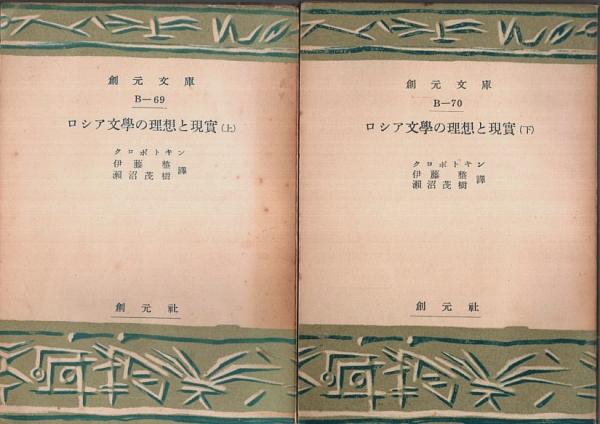 創元文庫
B—69
ロシア文學の理想と現實(上)
クロポトキン
伊藤整
瀬沼茂樹
譯
創元社
創元文庫
B—70
ロシア文學の理想と現實(下)
クロポトキン
伊藤整
瀬沼茂樹
譯
創元社